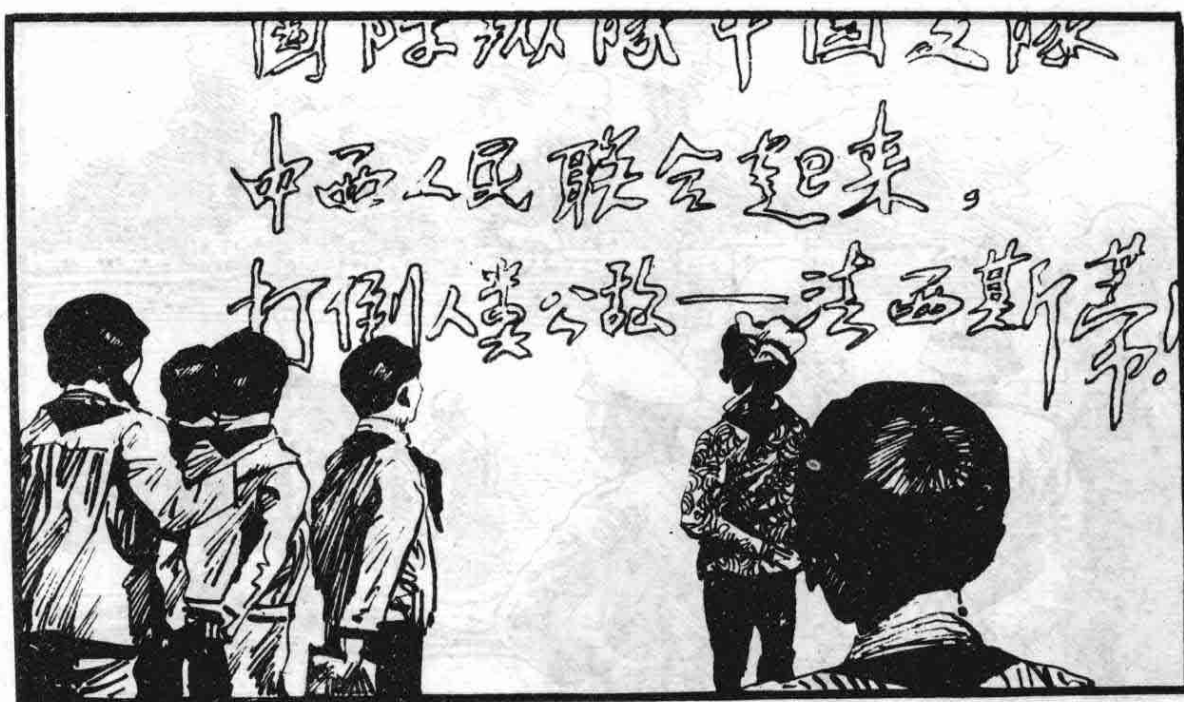 國际纵隊中國支隊
中西人民联合起来,
打倒人类公敌——法西斯蒂!